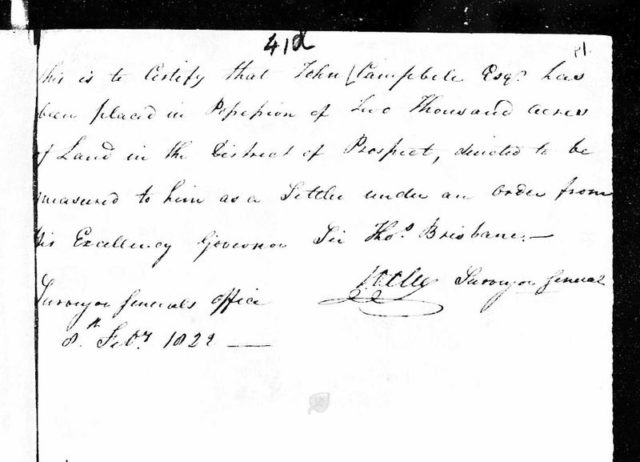 41d
This is to Certify that John Campbell Esqr. has
been placed in Possession of Two Thousand acres
of Land in the District of Prospect, directed to be
measured to him as a Settler under an Order from
His Excellency Governor Sir Thos. Brisbane.—
Surveyor General
Surveyor Generals Office
8th Feby. 1822 —